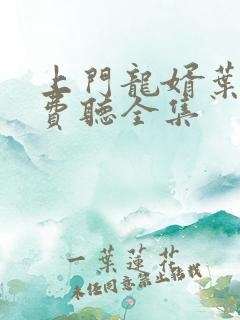 上門龍婿葉
費聽全集
一葉蓮花
未經同意禁止轉載